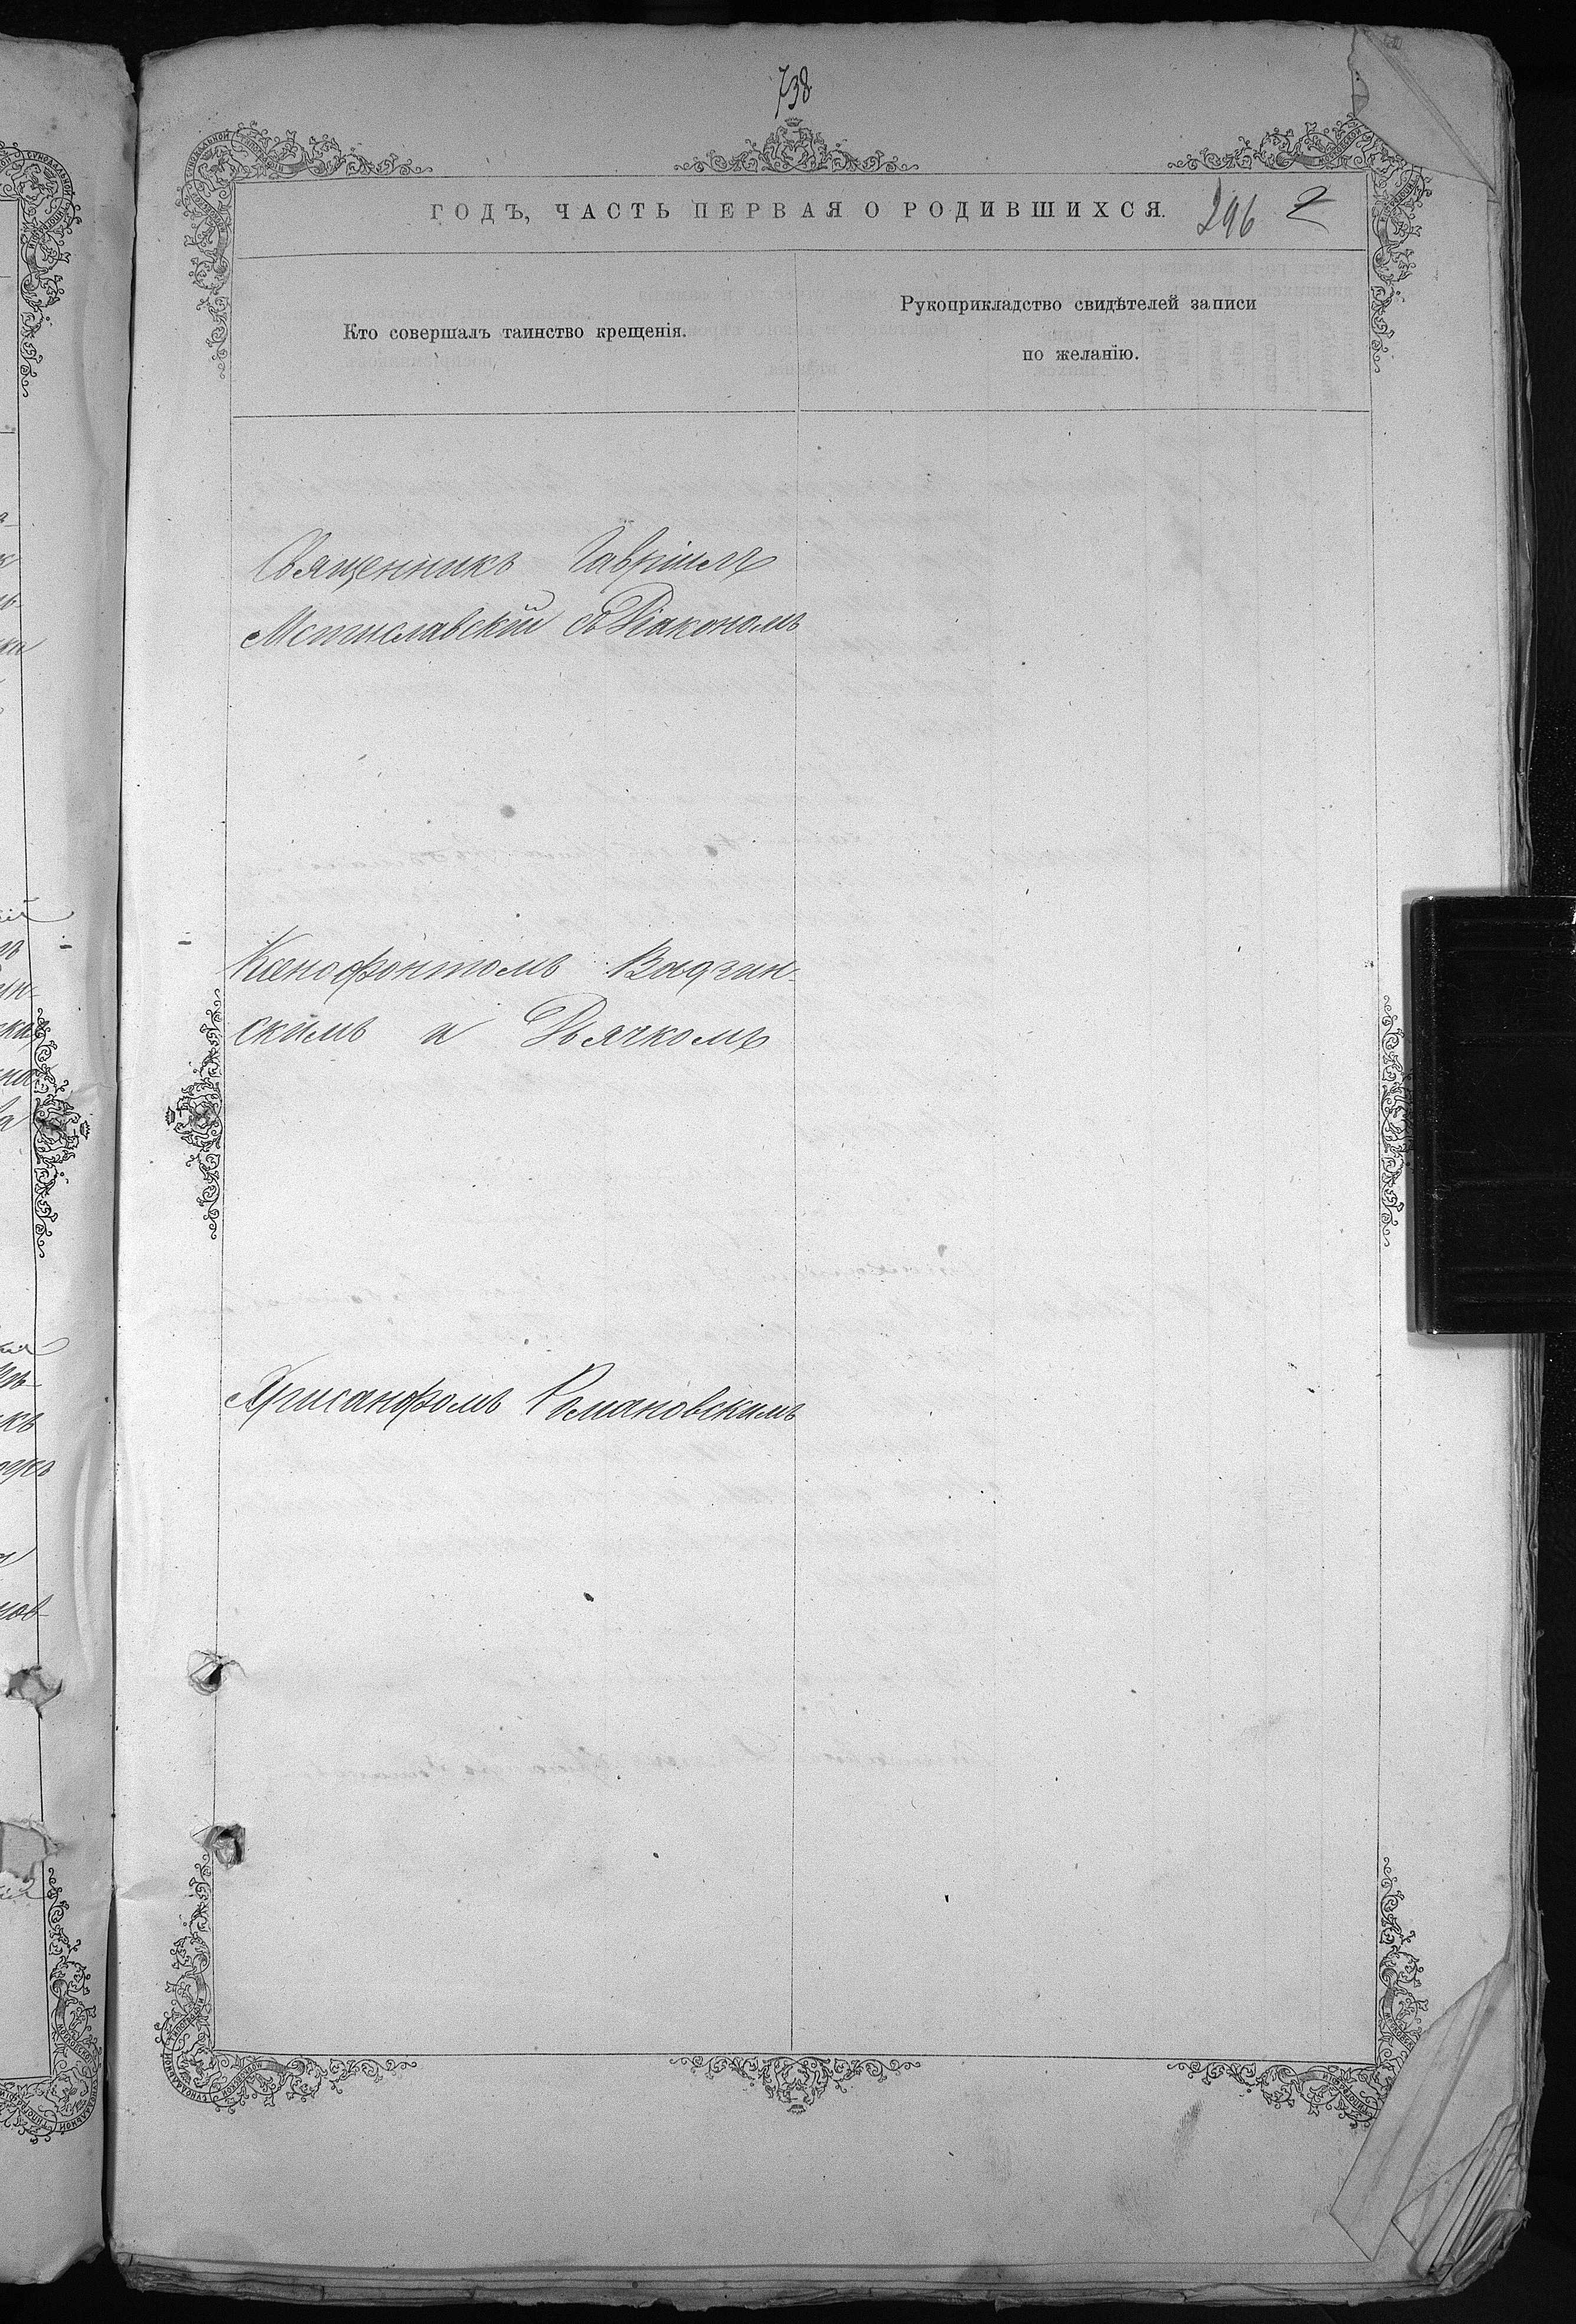 738
ГОДЪ, ЧАСТЬ ПЕРВАЯ О РОДИВШИХСЯ.
296
Кто совершалъ таинство крещенія.
Рукоприкладство свидѣтелей записи
по желанію.
Священникъ Гавріилъ
Мстиславскій съ Діакономъ
Ксенофонтомъ
скимъ и Дьячкомъ
Хрисанфомъ Романовскимъ